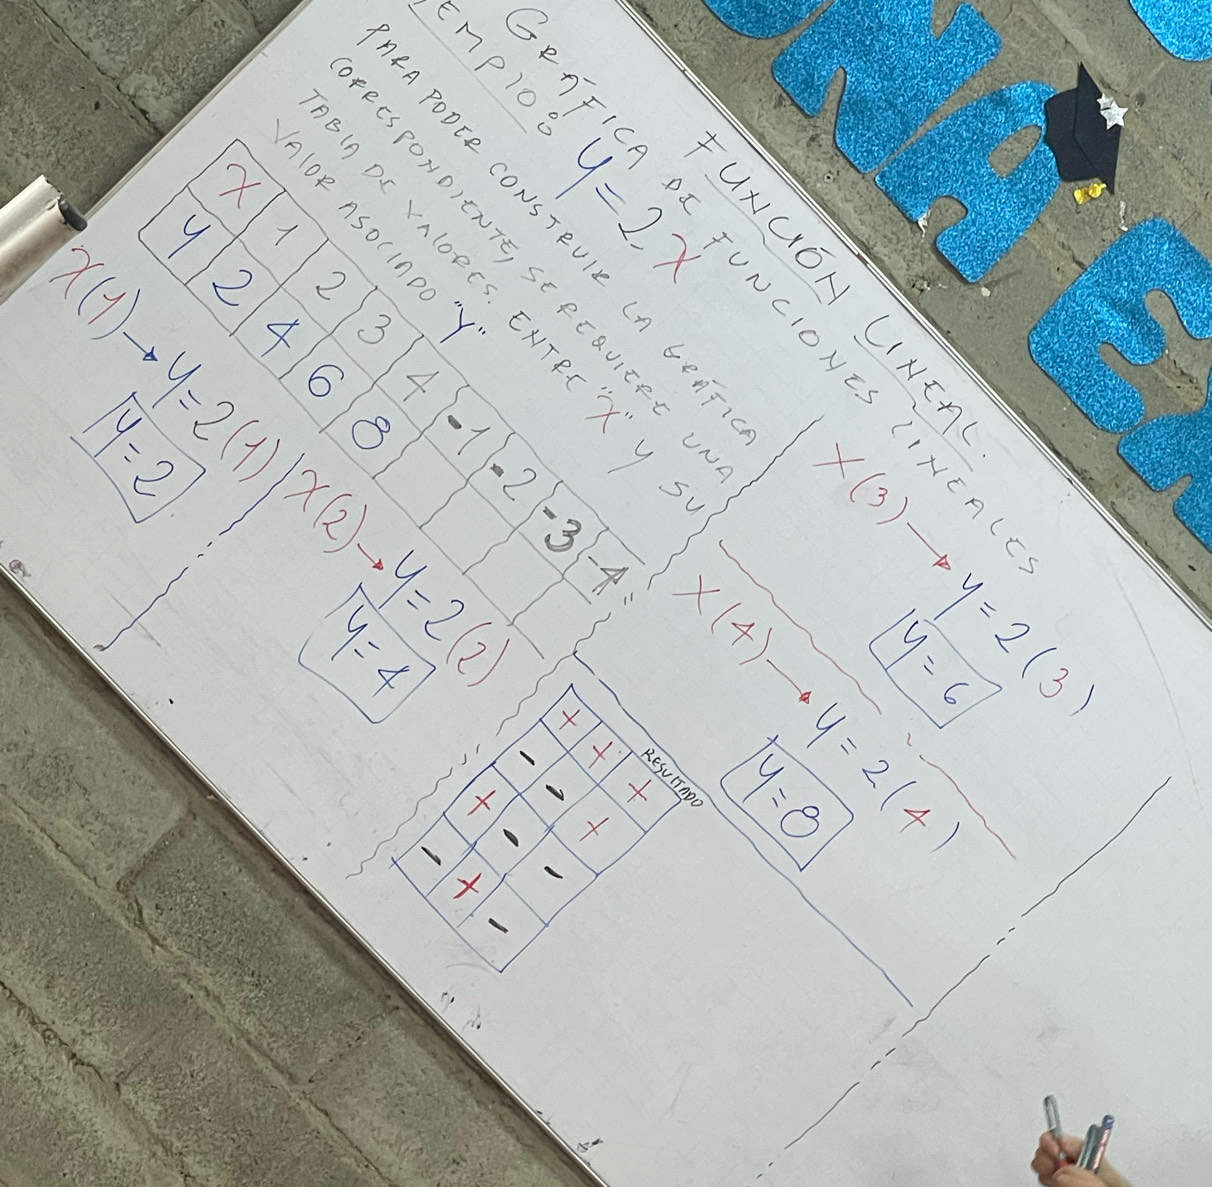 FUNCIÓN LINEAL.
GRÁFICA DE FUNCIONES LINEALES
EMPLO: y = 2x
PARA PODER CONSTRUIR LA GRÁFICA
CORRESPONDIENTE, SE REQUIERE UNA
TABLA DE VALORES. ENTRE "X" Y SU
VALOR ASOCIADO "Y"
X 1 2 3 4 -1 -2 -3 -4
y 2 4 6 8
X(1) → y = 2(1)
y = 2
X(2) → y = 2(2)
y = 4
X(3) → y = 2(3)
y = 6
X(4) → y = 2(4)
y = 8
RESULTADO
+ + +
- - +
+ - -
- + -
NA
E